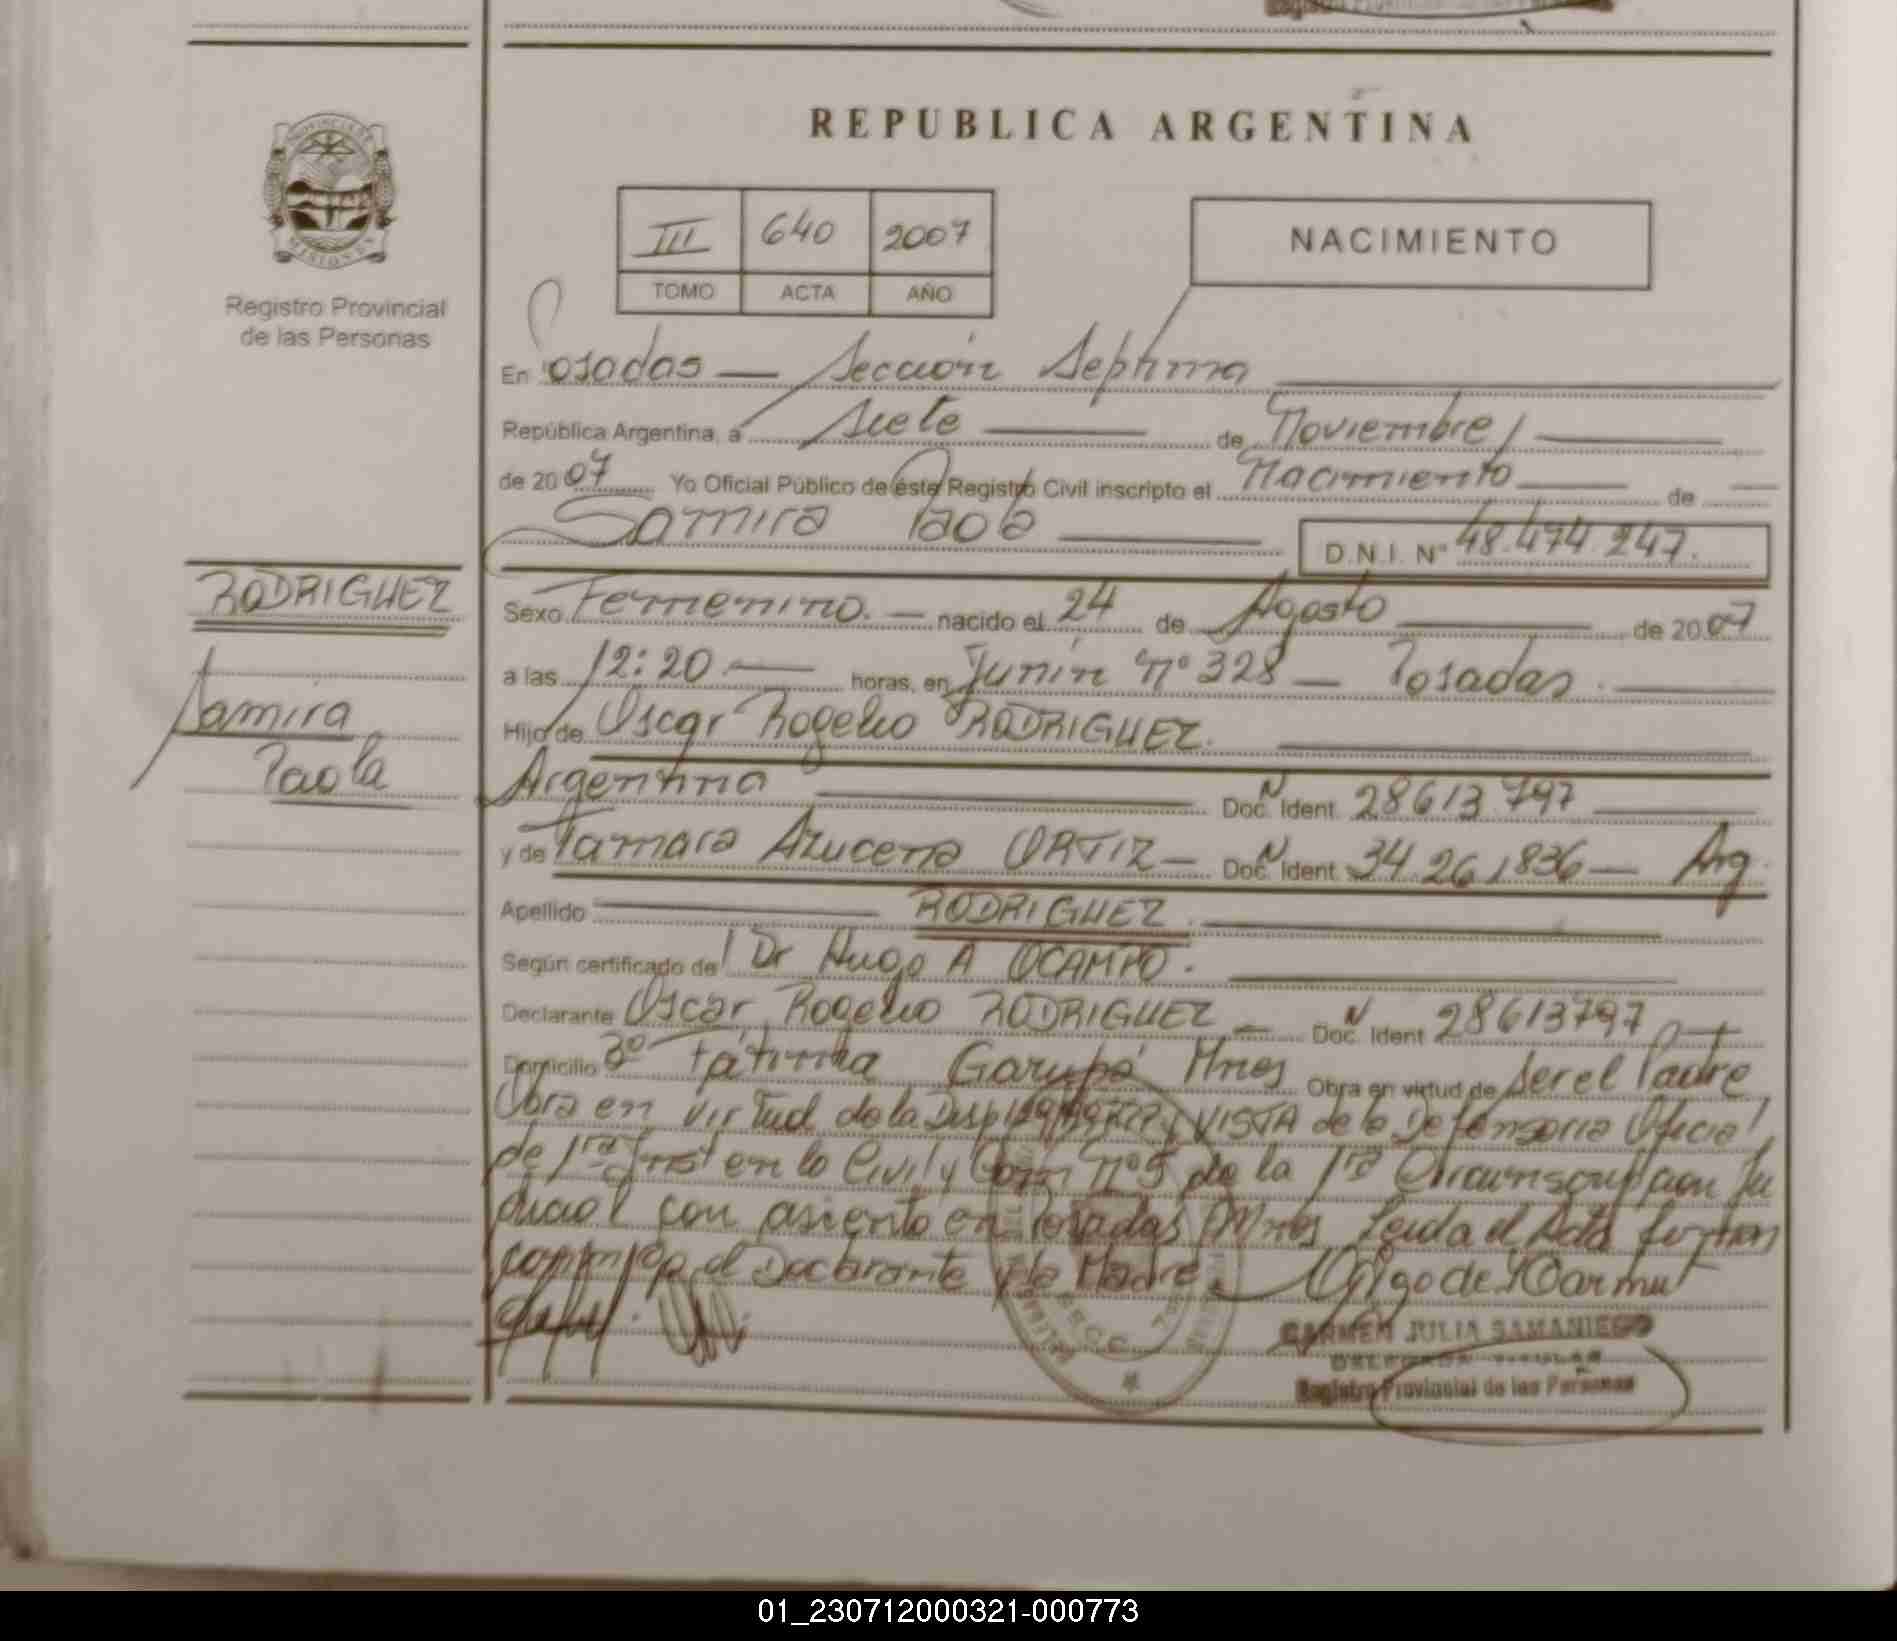 REPUBLICA ARGENTINA
PROVINCIA DE
MISIONES
Registro Provincial
de las Personas
III 640 2007
TOMO ACTA AÑO
NACIMIENTO
En Posadas — Sección Septima
República Argentina, a siete de Noviembre
de 2007 Yo Oficial Público de éste Registro Civil inscripto el Nacimiento de
Samira Paola D.N.I. Nº 48.474.247.
RODRIGUEZ
Samira
Paola
Sexo Femenino. — nacido el 24 de Agosto de 2007
a las 12:20 — horas, en Junín Nº 328 — Posadas.
Hijo de Oscar Rogelio RODRIGUEZ.
Argentina Doc. Ident. 28613797
y de Tamara Azucena ORTIZ — Doc. Ident. 34.261836 — Arg.
Apellido RODRIGUEZ.
Según certificado del Dr Hugo A OCAMPO.
Declarante Oscar Rogelio RODRIGUEZ — Doc. Ident 28613797
Domicilio Bº Fátima Garupá Mnes Obra en virtud de ser el Padre
Obra en virtud de la Disp VISTA de la Defensoria Oficial
de 1ra Inst en lo Civil y Com Nº 5 de la 1ra Circunscripcion Ju
dicial con asiento en Posadas Mnes Leida el Acta firman
conmigo el Declarante y la Madre.
CARMEN JULIA SAMANIEGO
DELEGADA TITULAR
Registro Provincial de las Personas
01_230712000321-000773